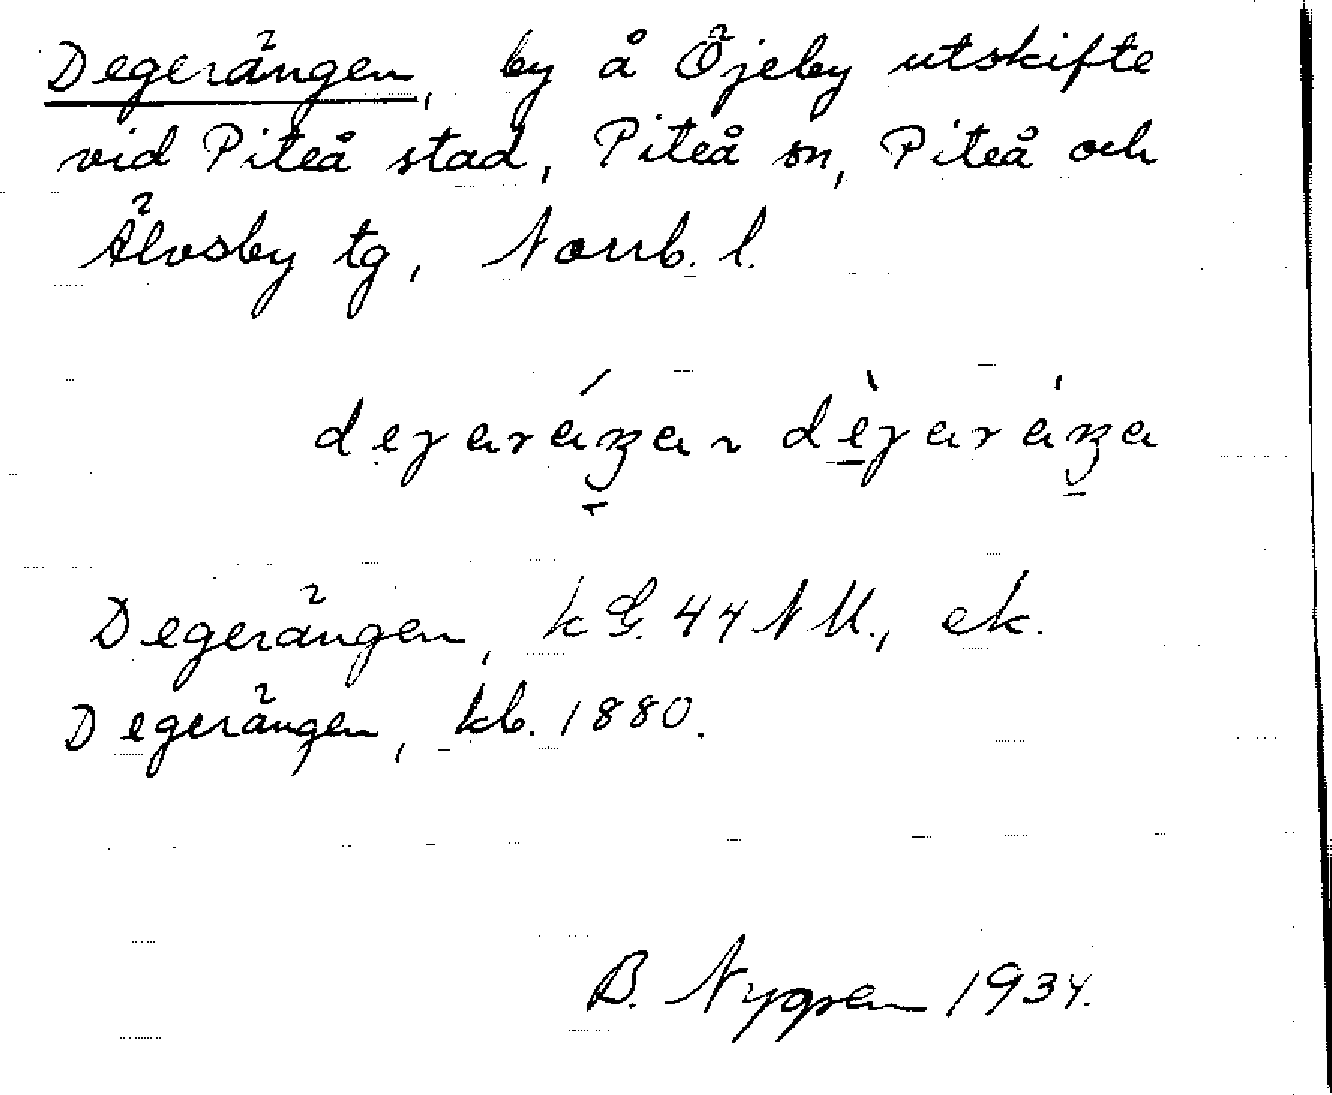 Degerängen, by å Öjeby utskifte
vid Piteå stad, Piteå sn, Piteå och
Älvsby tg, Norrb. l.
Degerängen, k G. 44 N U., ek.
Degerängen, kb. 1880.
B. Nygren 1934.